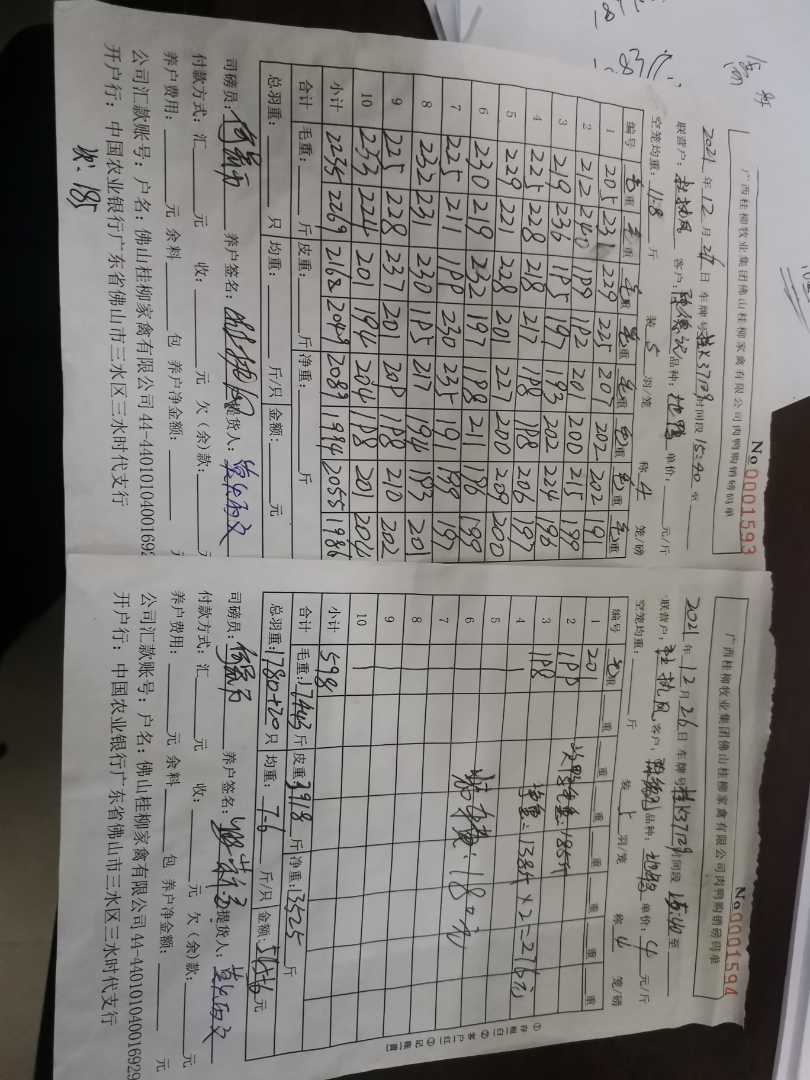 广西桂柳牧业集团佛山桂柳家禽有限公司肉鸭购销磅码单
No 0001593
2021 年 12 月 26 日 车牌号 桂K37129 时间段 15:40 至
联营户: 客户: 品种: 单价: 元/斤
空笼均重: 11.8 斤 装 5 羽/笼 称 4 笼/磅
编号 毛重 毛重 毛重 毛重 毛重 毛重 毛重 毛重
1 205 231 229 225 207 202 202 191
2 212 240 199 192 201 200 215 199
3 219 236 195 197 193 202 224 196
4 225 228 218 217 198 198 206 197
5 229 221 228 201 227 200 209 200
6 230 219 232 197 198 211 196 199
7 225 211 199 230 235 191 199 197
8 232 231 230 195 217 194 193 201
9 225 228 237 201 209 198 210 202
10 233 224 201 194 204 198 201 204
小计 2235 2269 2168 2049 2089 1994 2055 1986
合计 毛重: 斤 皮重: 斤 净重: 斤
总羽重: 只 均重: 斤/只 金额: 元
司磅员: 养户签名: 提货人:
付款方式: 汇 元 收: 元 欠(余)款:
养户费用: 元 余料 包 养户净金额:
公司汇款账号: 户名: 佛山桂柳家禽有限公司 44-440101040016929
开户行: 中国农业银行广东省佛山市三水区三水时代支行
次: 185
广西桂柳牧业集团佛山桂柳家禽有限公司肉鸭购销磅码单
No 0001594
2021 年 12 月 26 日 车牌号 桂K37129 时间段 15:40 至
联营户: 客户: 品种: 单价: 4 元/斤
空笼均重: 斤 装 5 羽/笼 称 4 笼/磅
编号 毛重 重 重 重 重 重 重 重
1 201
2 199
3 198
4
5
6
7
8
9
10
次鸭毛重: 185斤
净重: 138斤×2=276元
小计 598
合计 毛重: 17443 斤 皮重: 3918 斤 净重: 13525 斤
总羽重: 1780+20 只 均重: 7.6 斤/只 金额: 元
司磅员: 养户签名: 提货人:
付款方式: 汇 元 收: 元 欠(余)款: 元
养户费用: 元 余料 包 养户净金额: 元
公司汇款账号: 户名: 佛山桂柳家禽有限公司 44-440101040016929
开户行: 中国农业银行广东省佛山市三水区三水时代支行
①存根(白) ②客户(红) ③记账(黄)